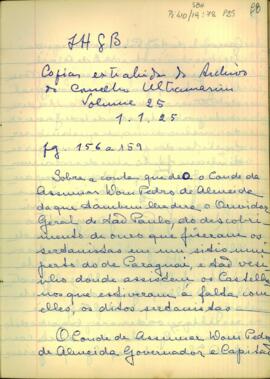 SBH
Pi 40/19:78 P25
I H G B
Copias extrahidas do Archivo
do Conselho Ultramarino
Volume 25
1.1.25
fg. 156 a 159
Sobre a conta que deo o Conde da
Assumar Dom Pedro de Almeida
da que tambem lhe dera o Ouvidor
Geral de São Paulo, do descobri-
mento de ouro que fiseram os
sertanistas em um sitio mui
perto do de Paraguai, e tão vesi
donde assistem os Castelha
nos que estiveram á falta com
elles, os ditos sertanistas
O Conde de Assumar Dom Pedro
de Almeida Governador e Capitão